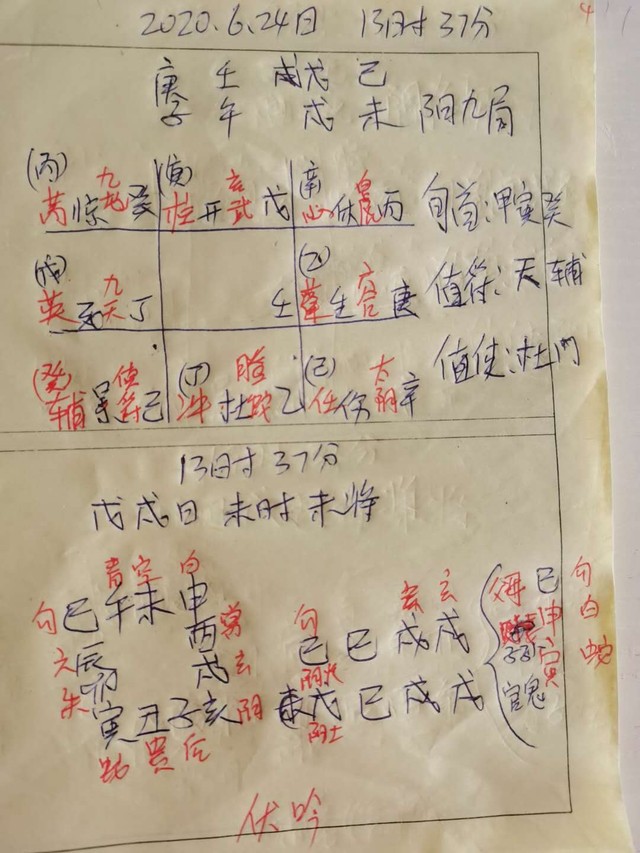 2020.6.24日 13时37分
庚 壬 戊 己
子 午 戌 未 阳九局
(丙) (庚) (辛)
芮 惊 九地 癸 柱 开 玄武 戊 心 休 白虎 丙 旬首:甲寅癸
(戊) (乙)
英 死 九天 丁 壬 蓬 生 六合 庚 值符:天辅
(癸) (丁) (己)
辅 景 值符 己 冲 杜 腾蛇 乙 任 伤 太阴 辛 值使:杜门
13时37分
戊戌日 未时未将
青 空 白
勾 巳 午 未 申
六 辰 酉 常
朱 卯 戌 玄
寅 丑 子 亥 阴
蛇 贵 后
勾 玄 玄
巳 巳 戌 戌
阴火
戊 巳 戌 戌
阳土
巳 勾
申 白
子孙 寅 蛇
官鬼
伏吟